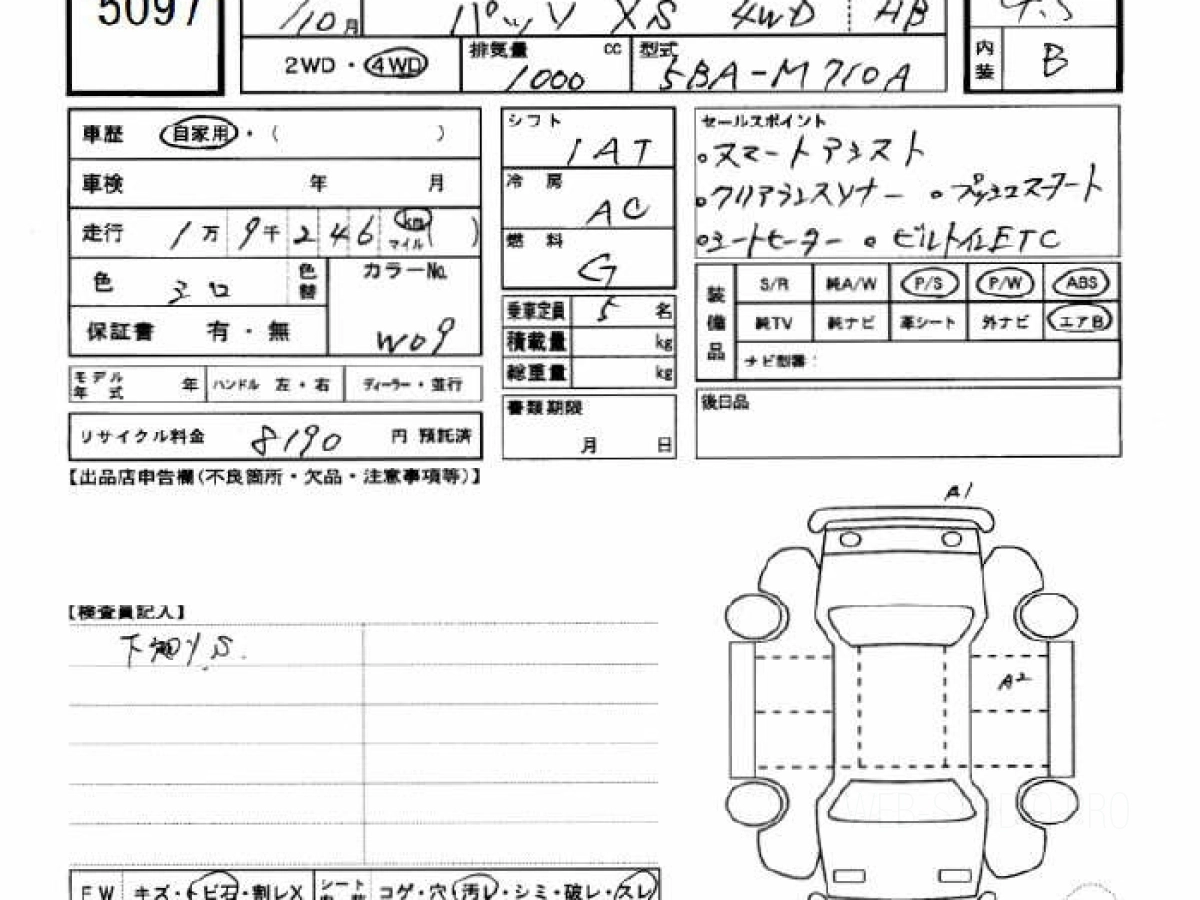 5097
/10月 パッソ XS 4WD HB
2WD・4WD 排気量 cc 1000 型式 5BA-M710A
内装 B
車歴 自家用・( )
車検 年 月
走行 1万 9千 2 4 6 km マイル ( )
色 シロ 色替 カラーNo. W09
保証書 有・無
モデル年式 年 ハンドル 左・右 ディーラー・並行
リサイクル料金 8190 円 預託済
シフト IAT
冷房 AC
燃料 G
乗車定員 5 名
積載量 kg
総重量 kg
書類期限 月 日
セールスポイント
○スマートアシスト
○クリアランスソナー ○プッシュスタート
○シートヒーター ○ビルトインETC
装備品 S/R 純A/W P/S P/W ABS
純TV 純ナビ 革シート 外ナビ エアB
ナビ型番:
後日品
【出品店申告欄(不良箇所・欠品・注意事項等)】
A1
【検査員記入】
下廻りS.
A2
FW キズ・トビ石・割レX シート コゲ・穴・汚レ・シミ・破レ・スレ